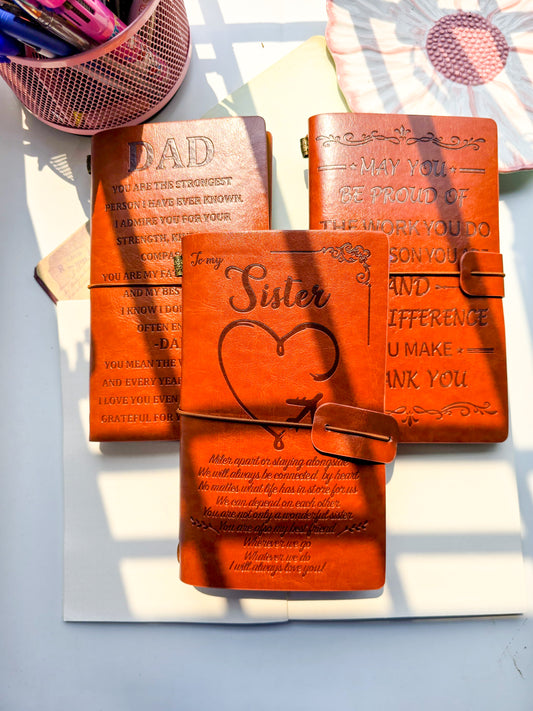 DAD
YOU ARE THE STRONGEST
PERSON I HAVE EVER KNOWN.
I ADMIRE YOU FOR YOUR
STRENGTH,
YOU ARE MY
AND MY BES
I KNOW I DO
OFTEN EN
-DA
YOU MEAN THE
AND EVERY YEA
I LOVE YOU EVEN
GRATEFUL FOR
MAY YOU
BE PROUD OF
THE WORK YOU DO
SON YOU
AND
IFFERENCE
U MAKE
ANK YOU
To my
Sister
Nhter apart or staying alongside
We will always be connected by heart
No matles what life has in store for us
We can depend on each other.
You are not only a wonderful sister
You are also my best friend
Wherever we go
Whatever we do
I will always love you!